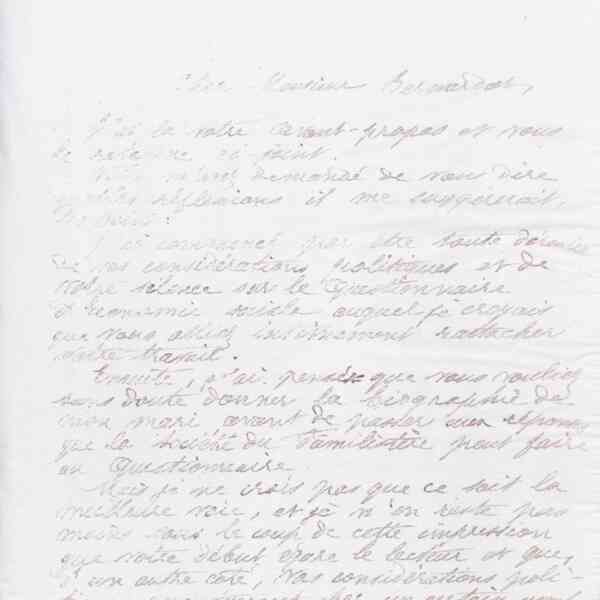 Cher Monsieur Bernardot,
J'ai lu votre avant-propos et vous
le retourne ci joint.
Vous m'avez demandé de vous dire
quelles réflexions il me suggérerait.
J'ai commencé par être toute déroutée
de vos considérations politiques et de
votre silence sur le Questionnaire
d'Economie sociale auquel je croyais
que vous alliez intimement rattacher
votre travail.
Ensuite, j'ai pensé que vous vouliez
sans doute donner la biographie de
mon mari avant de passer aux réponses
que la Société du Familistère peut faire
au Questionnaire.
Mais je ne crois pas que ce soit la
meilleure voie, et je n'en reste pas
moins sous le coup de cette impression
que votre début égare le lecteur et que,
d'un autre côté, vos considérations poli-